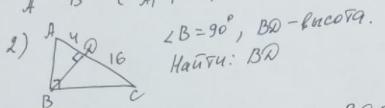 2) A 4 D 16 B C
∠B = 90°, BD - высота.
Найти: BD